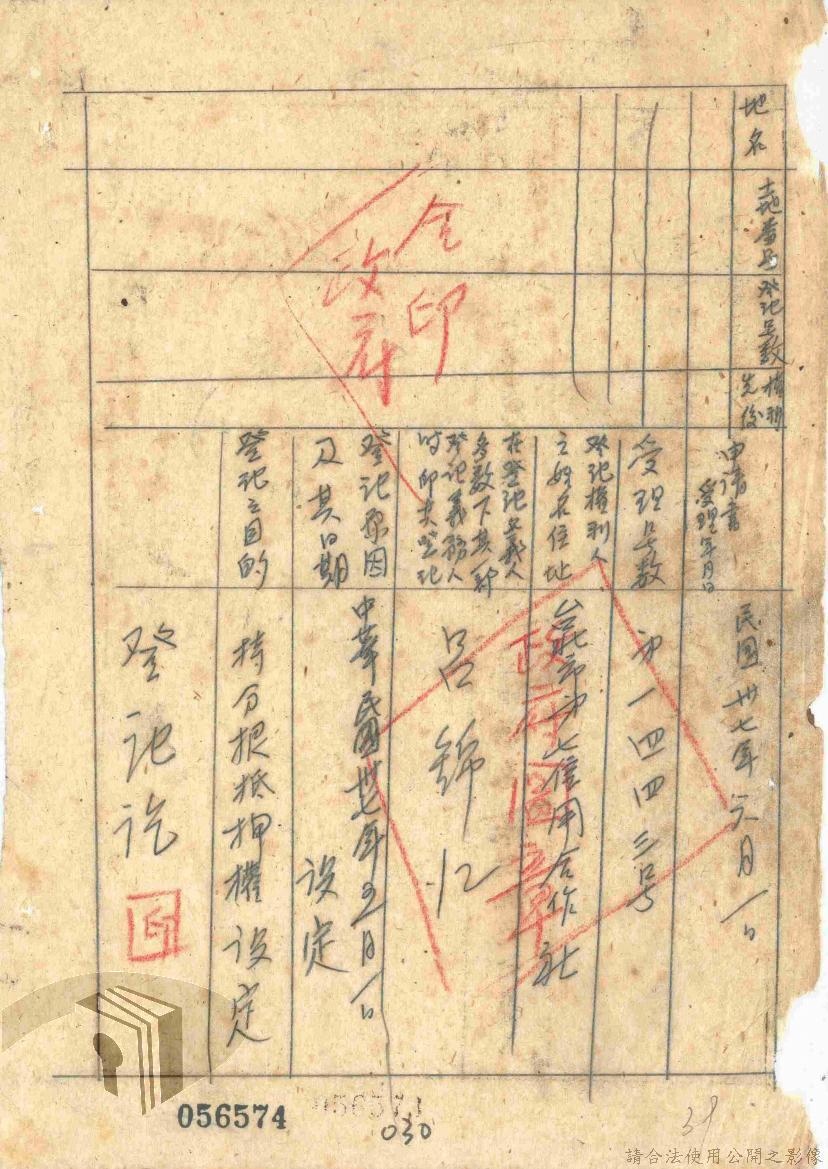 地名
土地番号
登記号数
權利先後
申請書
受理年月日
民國卅七年六月一日
受理号数
第一四四三号
登記權利人
之姓名住址
台北市第七信用合作社
在登記名義人
多數下其一部
登記義務人
時即其登記
呂錦江
登記原因
及其日期
中華民國卅七年五月一日
設定
登記之目的
持分根抵押權設定
登記訖
印
全印
政府
政府圖章
056574
056573
030
39
請合法使用公開之影像